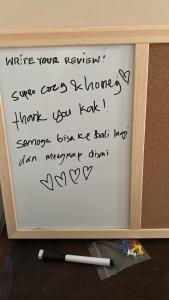 WRITE YOUR REVIEW!
super cozy & honey ♡
thank you kak!
semoga bisa ke Bali lagi
dan menginap disini
♡♡♡♡